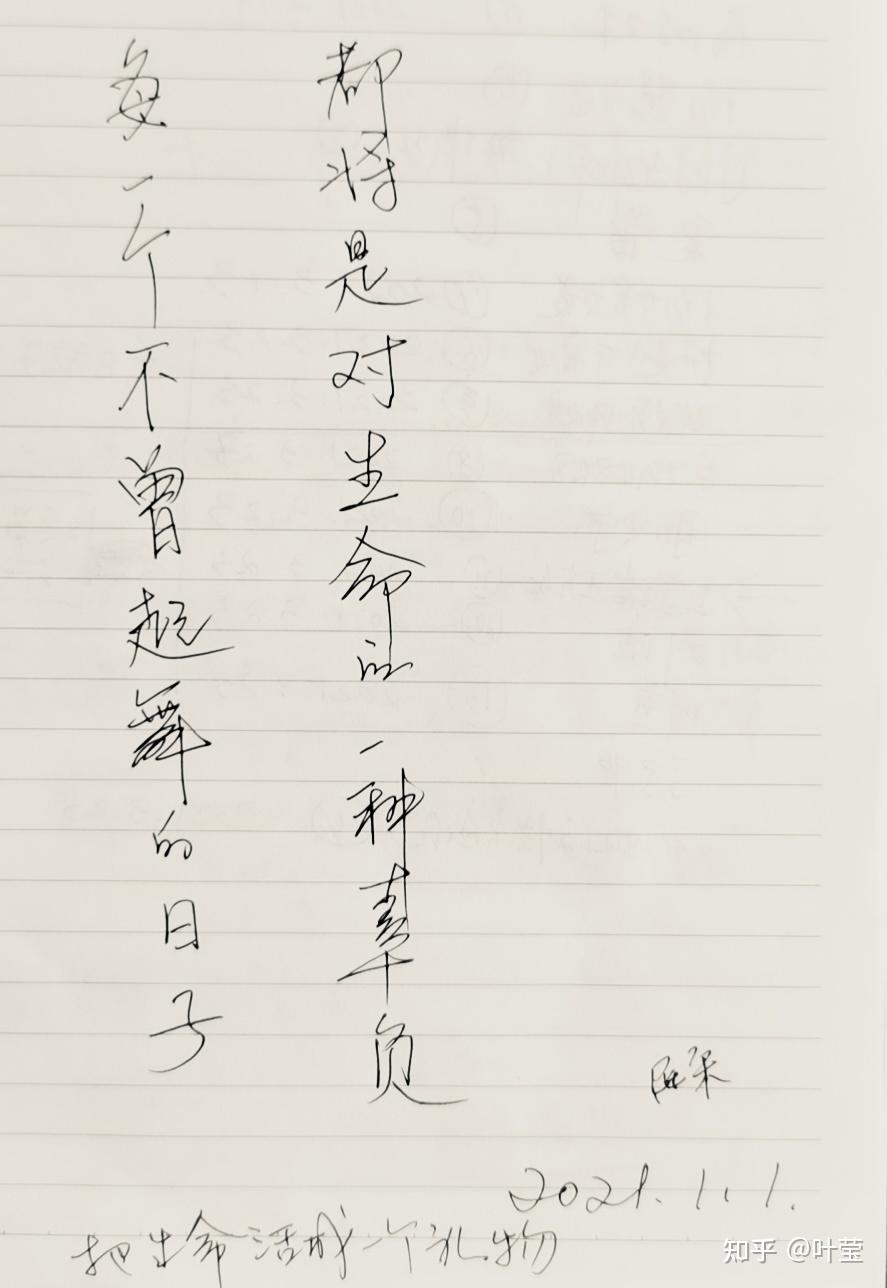 每一个不曾起舞的日子
都将是对生命的一种辜负
2021.1.1.
把生命活成一个礼物
知乎 @叶莹